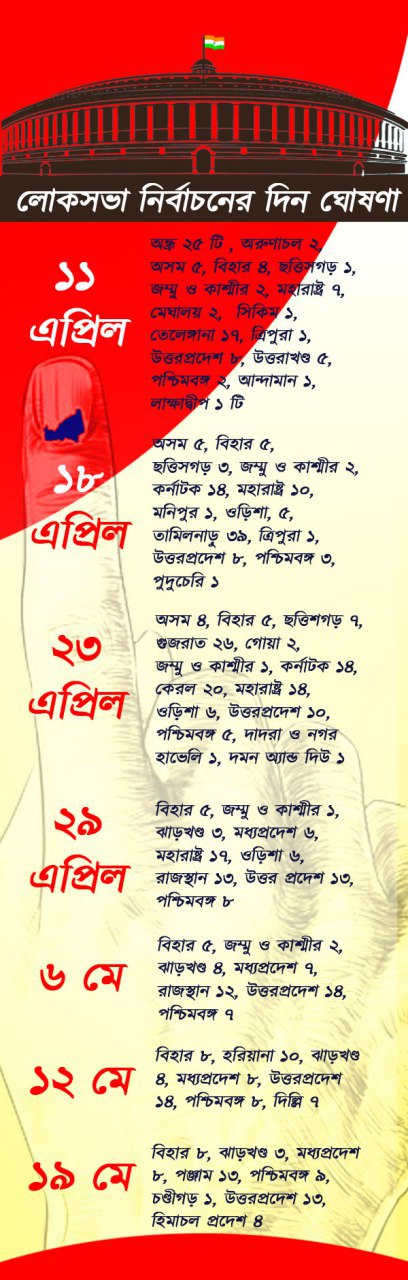 লোকসভা নির্বাচনের দিন ঘোষণা
১১
এপ্রিল
অন্ধ্র ২৫ টি , অরুণাচল ২,
অসম ৫, বিহার ৪, ছত্তিসগড় ১,
জম্মু ও কাশ্মীর ২, মহারাষ্ট্র ৭,
মেঘালয় ২, সিকিম ১,
তেলেঙ্গানা ১৭, ত্রিপুরা ১,
উত্তরপ্রদেশ ৮, উত্তরাখণ্ড ৫,
পশ্চিমবঙ্গ ২, আন্দামান ১,
লাক্ষাদ্বীপ ১ টি
১৮
এপ্রিল
অসম ৫, বিহার ৫,
ছত্তিসগড় ৩, জম্মু ও কাশ্মীর ২,
কর্নাটক ১৪, মহারাষ্ট্র ১০,
মনিপুর ১, ওড়িশা, ৫,
তামিলনাড়ু ৩৯, ত্রিপুরা ১,
উত্তরপ্রদেশ ৮, পশ্চিমবঙ্গ ৩,
পুদুচেরি ১
২৩
এপ্রিল
অসম ৪, বিহার ৫, ছত্তিশগড় ৭,
গুজরাত ২৬, গোয়া ২,
জম্মু ও কাশ্মীর ১, কর্নাটক ১৪,
কেরল ২০, মহারাষ্ট্র ১৪,
ওড়িশা ৬, উত্তরপ্রদেশ ১০,
পশ্চিমবঙ্গ ৫, দাদরা ও নগর
হাভেলি ১, দমন অ্যান্ড দিউ ১
২৯
এপ্রিল
বিহার ৫, জম্মু ও কাশ্মীর ১,
ঝাড়খণ্ড ৩, মধ্যপ্রদেশ ৬,
মহারাষ্ট্র ১৭, ওড়িশা ৬,
রাজস্থান ১৩, উত্তর প্রদেশ ১৩,
পশ্চিমবঙ্গ ৮
৬ মে
বিহার ৫, জম্মু ও কাশ্মীর ২,
ঝাড়খণ্ড ৪, মধ্যপ্রদেশ ৭,
রাজস্থান ১২, উত্তরপ্রদেশ ১৪,
পশ্চিমবঙ্গ ৭
১২ মে
বিহার ৮, হরিয়ানা ১০, ঝাড়খণ্ড
৪, মধ্যপ্রদেশ ৮, উত্তরপ্রদেশ
১৪, পশ্চিমবঙ্গ ৮, দিল্লি ৭
১৯ মে
বিহার ৮, ঝাড়খণ্ড ৩, মধ্যপ্রদেশ
৮, পঞ্জাম ১৩, পশ্চিমবঙ্গ ৯,
চণ্ডীগড় ১, উত্তরপ্রদেশ ১৩,
হিমাচল প্রদেশ ৪